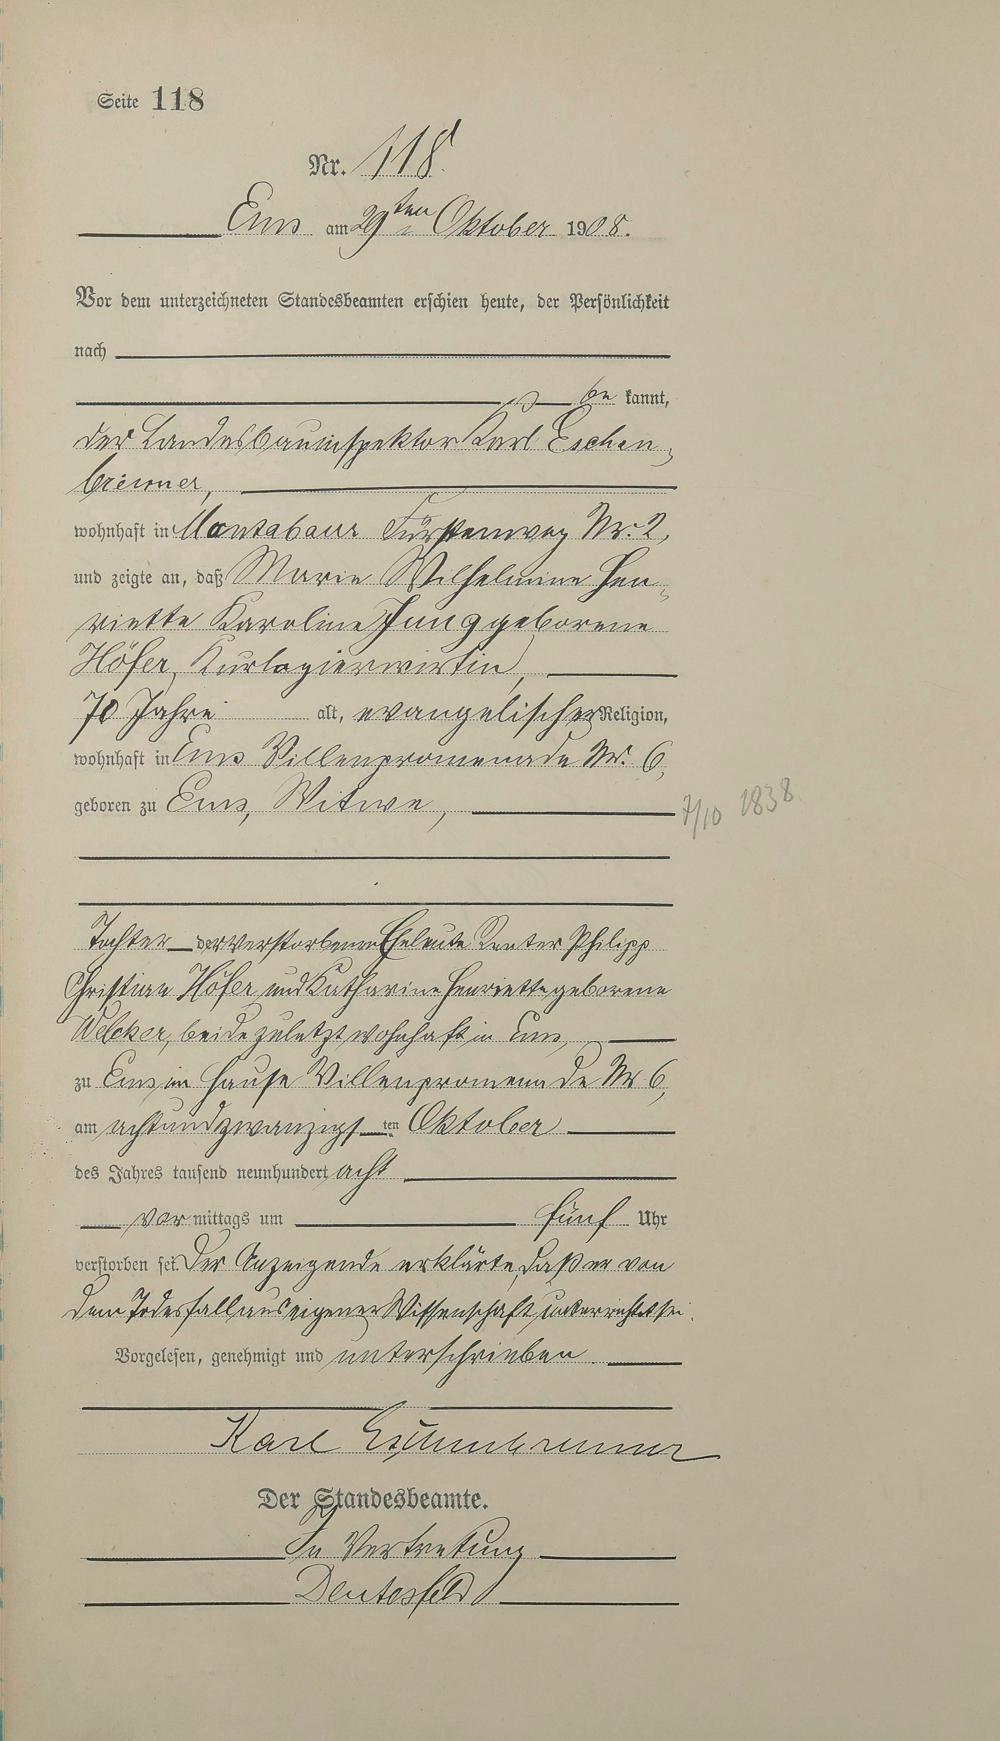 Seite 118
Nr. 118.
Ems am 29ten Oktober 1908.
Vor dem unterzeichneten Standesbeamten erschien heute, der Persönlichkeit
nach
be kannt,
der Landesbauinspektor Karl Eschen-
brenner,
wohnhaft in Montabaur Fürstenweg Nr. 2,
und zeigte an, daß Marie Wilhelmine Hen-
riette Karoline Jung geborene
Höfer, Kurlogierwirtin,
70 Jahre alt, evangelischer Religion,
wohnhaft in Ems Villenpromenade Nr. 6,
geboren zu Ems, Witwe,
7/10 1838.
Tochter der verstorbenen Eheleute Renter Philipp
Christian Höfer und Katharine Henriette geborene
Welcker, beide zuletzt wohnhaft in Ems,
zu Ems im Hause Villenpromenade Nr 6,
am achtundzwanzigsten Oktober
des Jahres tausend neunhundert acht
vor mittags um fünf Uhr
verstorben sei. Der Anzeigende erklärte, daß er von
dem Todesfall aus eigener Wissenschaft unterrichtet sei.
Vorgelesen, genehmigt und unterschrieben
Karl Eschenbrenner
Der Standesbeamte.
In Vertretung